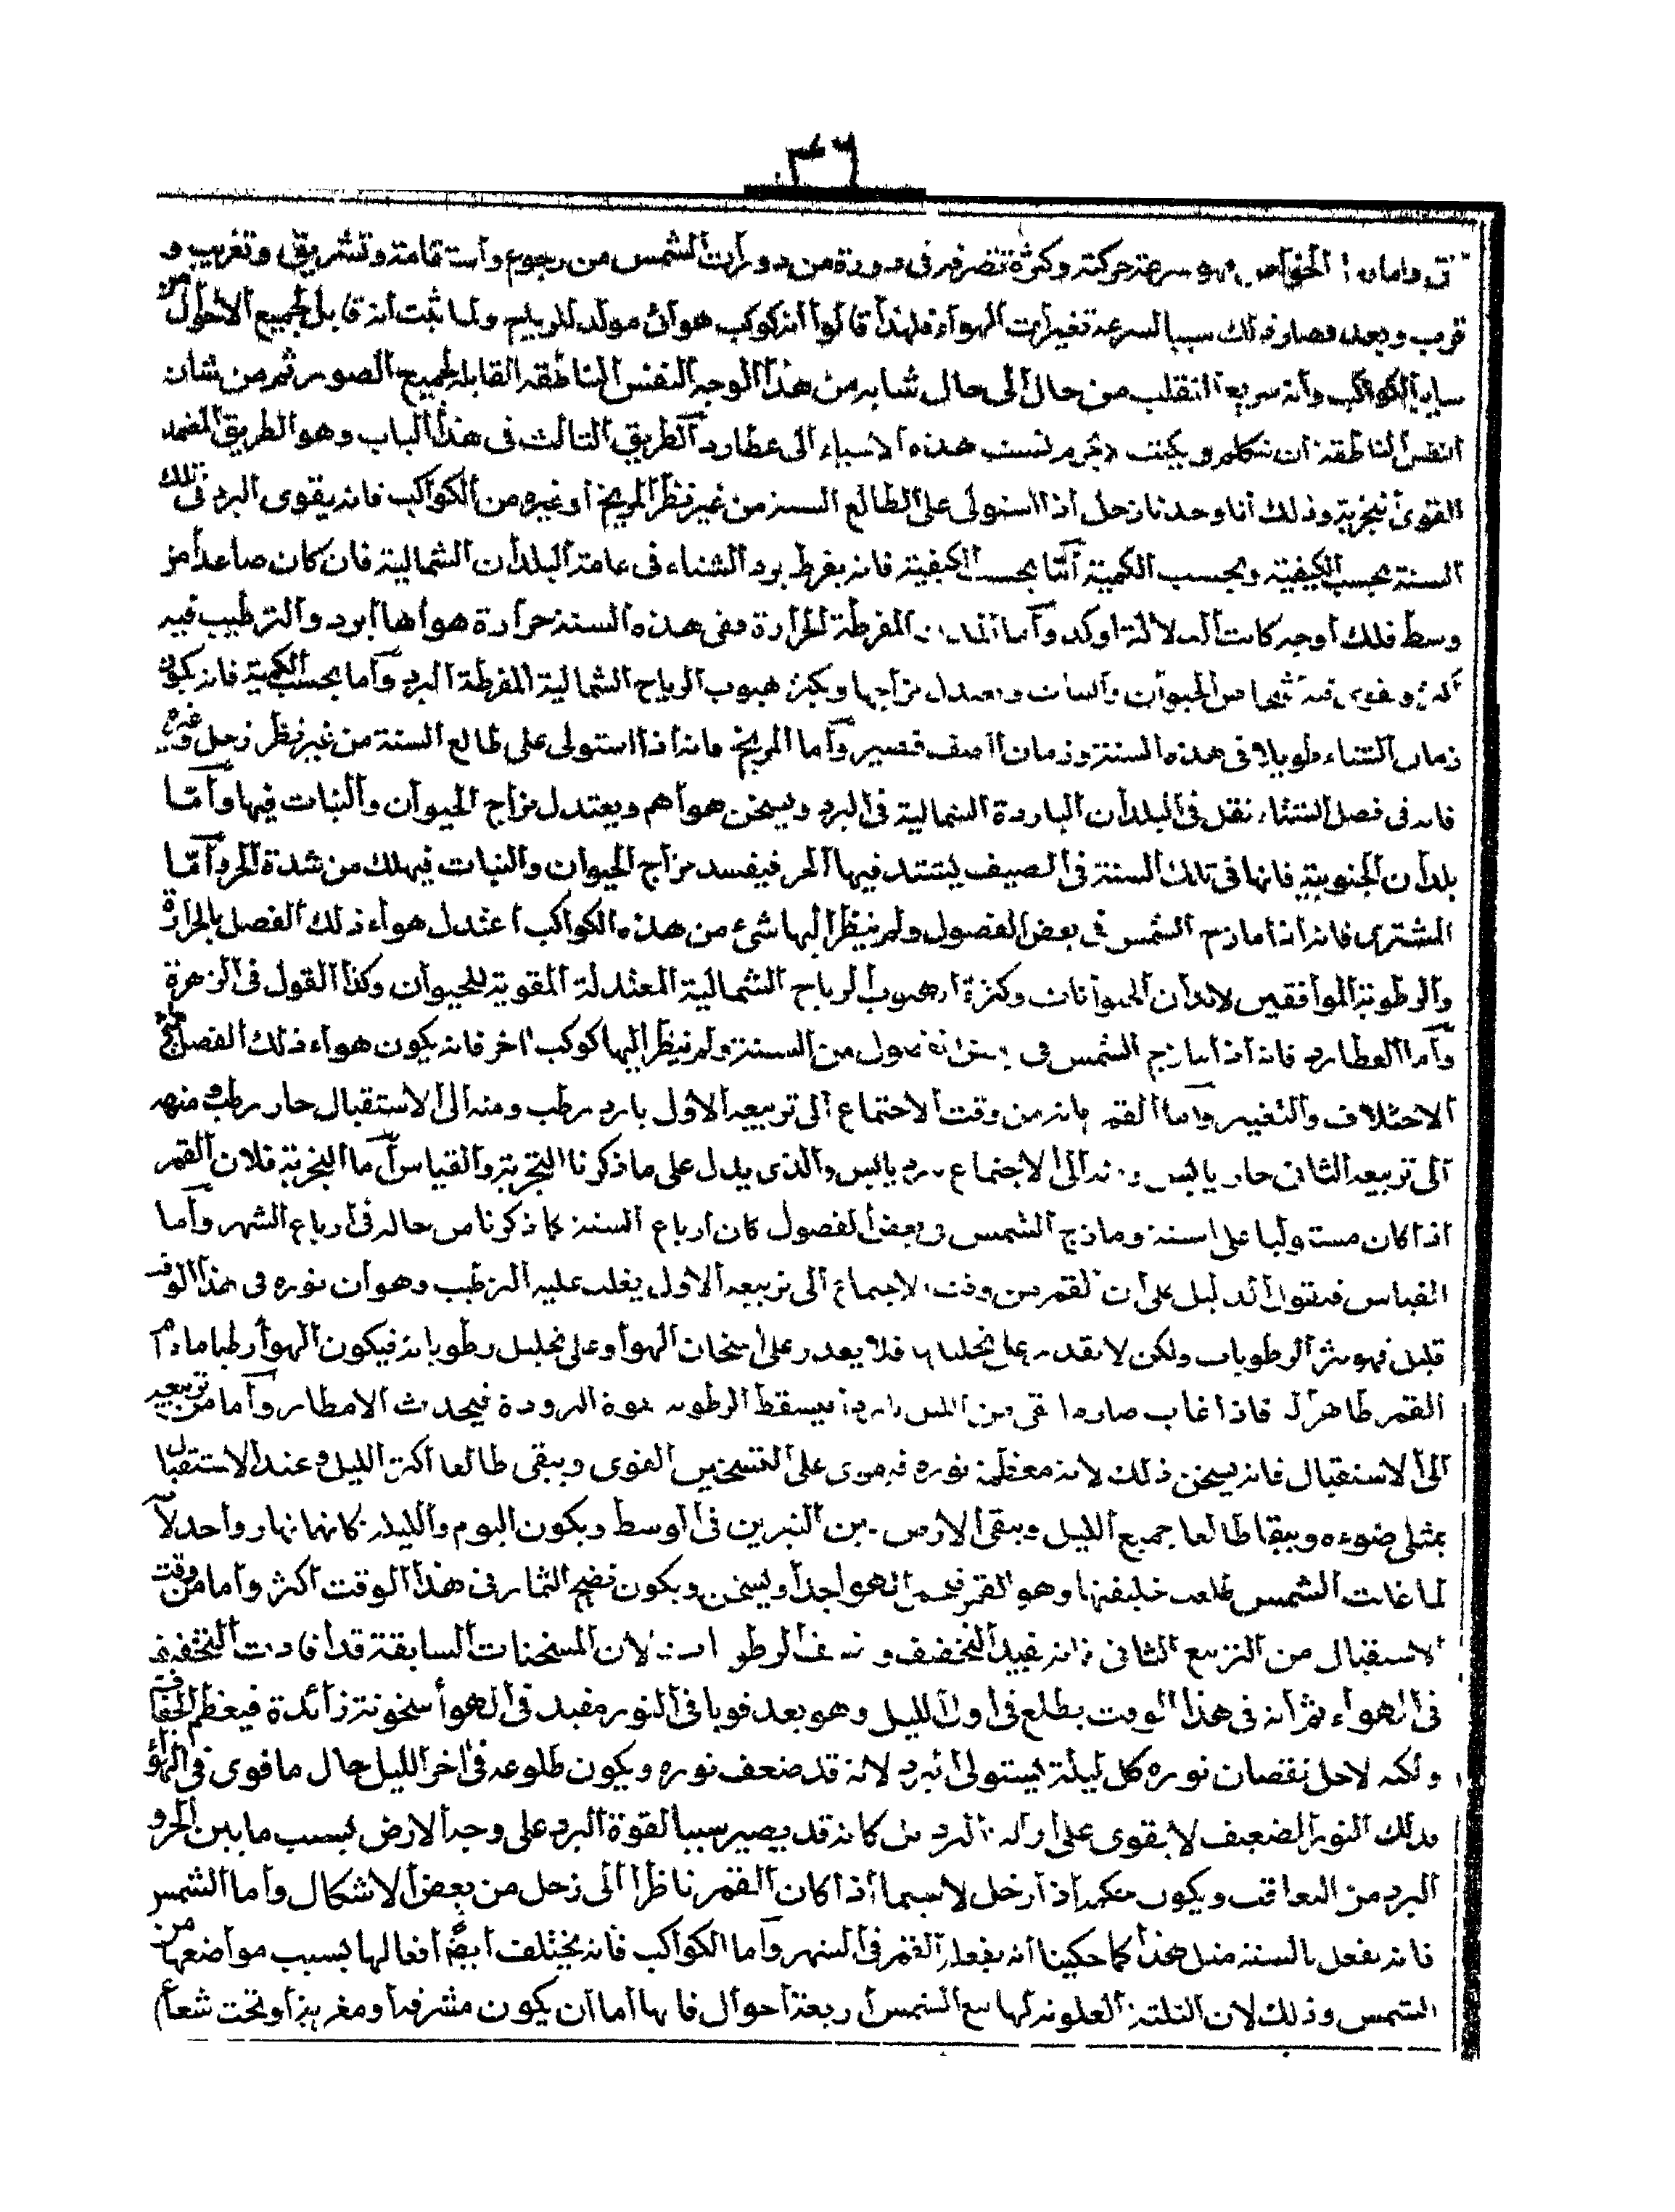 ٣٦
واما الخواص فهو سرعة حركته وكثرة تصرفه فى دورة من دورات الشمس من رجوع واستقامة وتشريق وتغريب و
قرب وبعد فصار ذلك سببا لسرعة تغيرات الهواء فلهذا قالوا انه كوكب هوائى مولد للرياح ولما ثبت انه قابل لجميع الاحوال من
ساير الكواكب وانه سريع التقلب من حال الى حال شابه من هذا الوجه النفس الناطقة القابلة لجميع الصور ثم من شان
النفس الناطقة ان تتكلم ويكتب لاجرم نسبت هذه الاشياء الى عطارد الطريق الثالث فى هذا الباب وهو الطريق المعتمد
القوى تجربة وذلك انا وجدنا زحل اذا استولى على الطالع السنة من غير نظر المريخ او غيره من الكواكب فانه يقوى البرد فى تلك
السنة بحسب الكيفية وبحسب الكمية اما بحسب الكيفية فانه يفرط برد الشتاء فى عامة البلدان الشمالية فان كان صاعدا من
وسط فلك اوجه كانت الدلالة اوكد واما البلدان المفرطة الحرارة ففى هذه السنة حرارة هواها ابرد والترطيب فيه
الحيوان والنبات ويعتدل مزاجها ويكثر هبوب الرياح الشمالية المفرطة البرد واما بحسب الكمية فانه يكون
زمان الشتاء طويلا فى هذه السنة وزمان الصف قصير واما المريخ فانه اذا استولى على طالع السنة من غير نظر زحل وغيره
فانه فى فصل الشتاء تقل فى البلدان الباردة الشمالية فى البرد ويسخن هواهم ويعتدل مزاج الحيوان والنبات فيها واما
بلدان الجنوبية فانها فى تلك السنة فى الصيف يشتد فيها الحر فيفسد مزاج الحيوان والنبات فيهلك من شدة الحر اما
المشترى فانه اذا مازج الشمس فى بعض الفصول ولم ينظر اليها شئ من هذه الكواكب اعتدل هواء ذلك الفصل بالحرارة
والرطوبة الموافقين لابدان الحيوانات وكثرة هبوب الرياح الشمالية المعتدلة المقوية للحيوان وكذا القول فى الزهرة
واما العطارد فانه اذا مازج الشمس فى بعض الفصول من السنة ولم ينظر اليها كوكب اخر فانه يكون هواء ذلك الفصل
الاختلاف والتغير واما القمر فانه من وقت الاجتماع الى تربيعه الاول بارد رطب ومنه الى الاستقبال حار رطب ومنه
الى تربيعه الثانى حار يابس ومنه الى الاجتماع بارد يابس والذى يدل على ما ذكرنا التجربة والقياس اما التجربة فلان القمر
اذا كان مستوليا على السنة ومازج الشمس فى بعض الفصول كان ارباع السنة كما ذكرنا من حاله فى ارباع الشهر واما
القياس فنقول الدليل على ان القمر من وقت الاجتماع الى تربيعه الاول يغلب عليه الترطيب وهو ان نوره فى هذا الوقت
قليل فهو يثر الرطوبات ولكن لا يقدر على تحليلها فلا يقدر على اسخان الهوا وعلى تحليل رطوباته فيكون الهوا رطبا مادام
القمر ظاهرا فاذا غاب صار ما بقى من الليل باردا فيسقط الرطوبة بقوة البرودة فيحدث الامطار واما من تربيعه
الى الاستقبال فانه يسخن ذلك لانه معظم نوره فيقوى على التسخين القوى ويبقى طالعا اكثر الليل وعند الاستقبال
يمثلى ضوءه ويبقا طالعا جميع الليل ويبقى الارض بين النيرين فى الوسط ويكون اليوم والليلة كانهما نهار واحد لانه
لما غابت الشمس طلعت خليفتها وهو القمر فيحمى الهوا جدا ويسخن ويكون نضج الثمار فى هذا الوقت اكثر واما من وقت
الاستقبال من التربيع الثانى فانه يفيد التخفيف ونشف الرطوبات لان المسخنات السابقة قد افادت التخفيف
فى الهواء ثم انه فى هذا الوقت يطلع فى اول الليل وهو بعد قويا فى النور مفيد فى الهوا سخونة زائدة فيعظم الجفاف
ولكنه لاجل نقصان نوره كل ليلة يستولى البرد لانه قد ضعف نوره ويكون طلوعه فى اخر الليل حال ما قوى فى الهواء
بذلك النور الضعيف لا يقوى على ازالة البرد بل كانه قد يصير سببا لقوة البرد على وجه الارض بسبب ما بين الحر و
البرد من التعاقب ويكون حكمه اذا زحل لاسيما اذا كان القمر ناظرا الى زحل من بعض الاشكال واما الشمس
فانه يفعل بالسنة مثل هذا كما حكينا انه يفعله القمر فى الشهر واما الكواكب فانه يختلف ايضا افعالها بسبب مواضعها من
الشمس وذلك لان الثلثة العلوية لها مع الشمس اربعة احوال فانها اما ان يكون مشرفة او مغربة او تحت شعاع